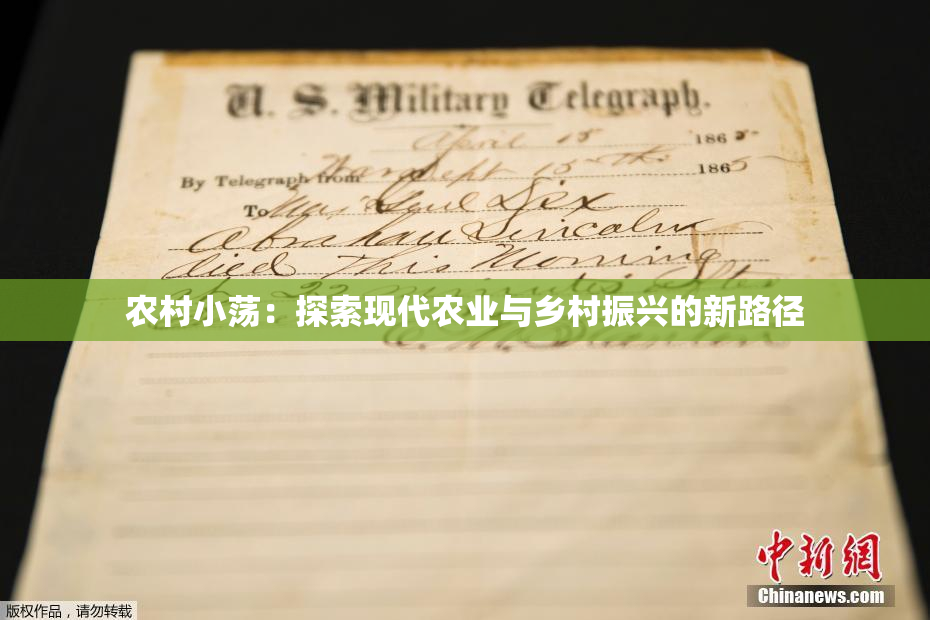 U. S. Military Telegraph.
April 15 1865
By Telegraph from War Dept 15th 1865
To Maj Genl Dix
Abraham Lincoln
died This Morning
at 22 minutes after
农村小荡：探索现代农业与乡村振兴的新路径
E. M. Stanton
中新网
Chinanews.com
版权作品，请勿转载